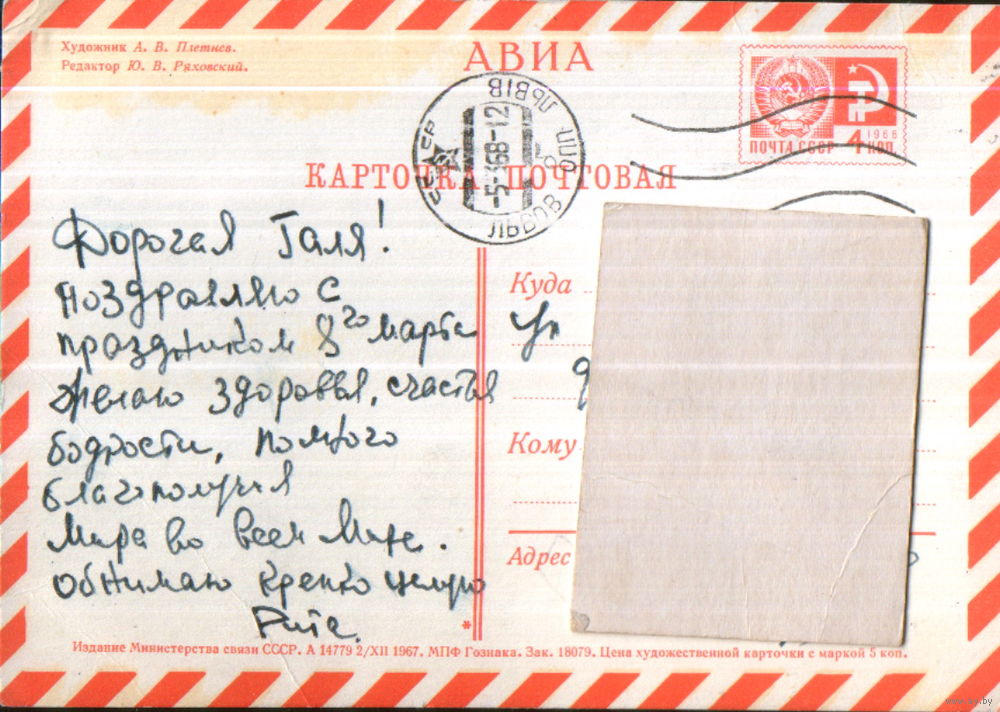 Художник А. В. Плетнев.
Редактор Ю. В. Ряховский.
АВИА
ПОЧТА СССР 4 КОП.
1966
СССР ЛЬВІВ ОПП
-5-368-12
ЛЬВОВ
КАРТОЧКА ПОЧТОВАЯ
Дорогая Галя!
поздравляю с
праздником 8го марта
желаю здоровья, счастья
бодрости, полного
благополучия
Мира во всем Мире.
обнимаю крепко целую
Рита.
Куда
Ул
Кому
Адрес
*
Издание Министерства связи СССР. А 14779 2/XII 1967. МПФ Гознака. Зак. 18079. Цена художественной карточки с маркой 5 коп.